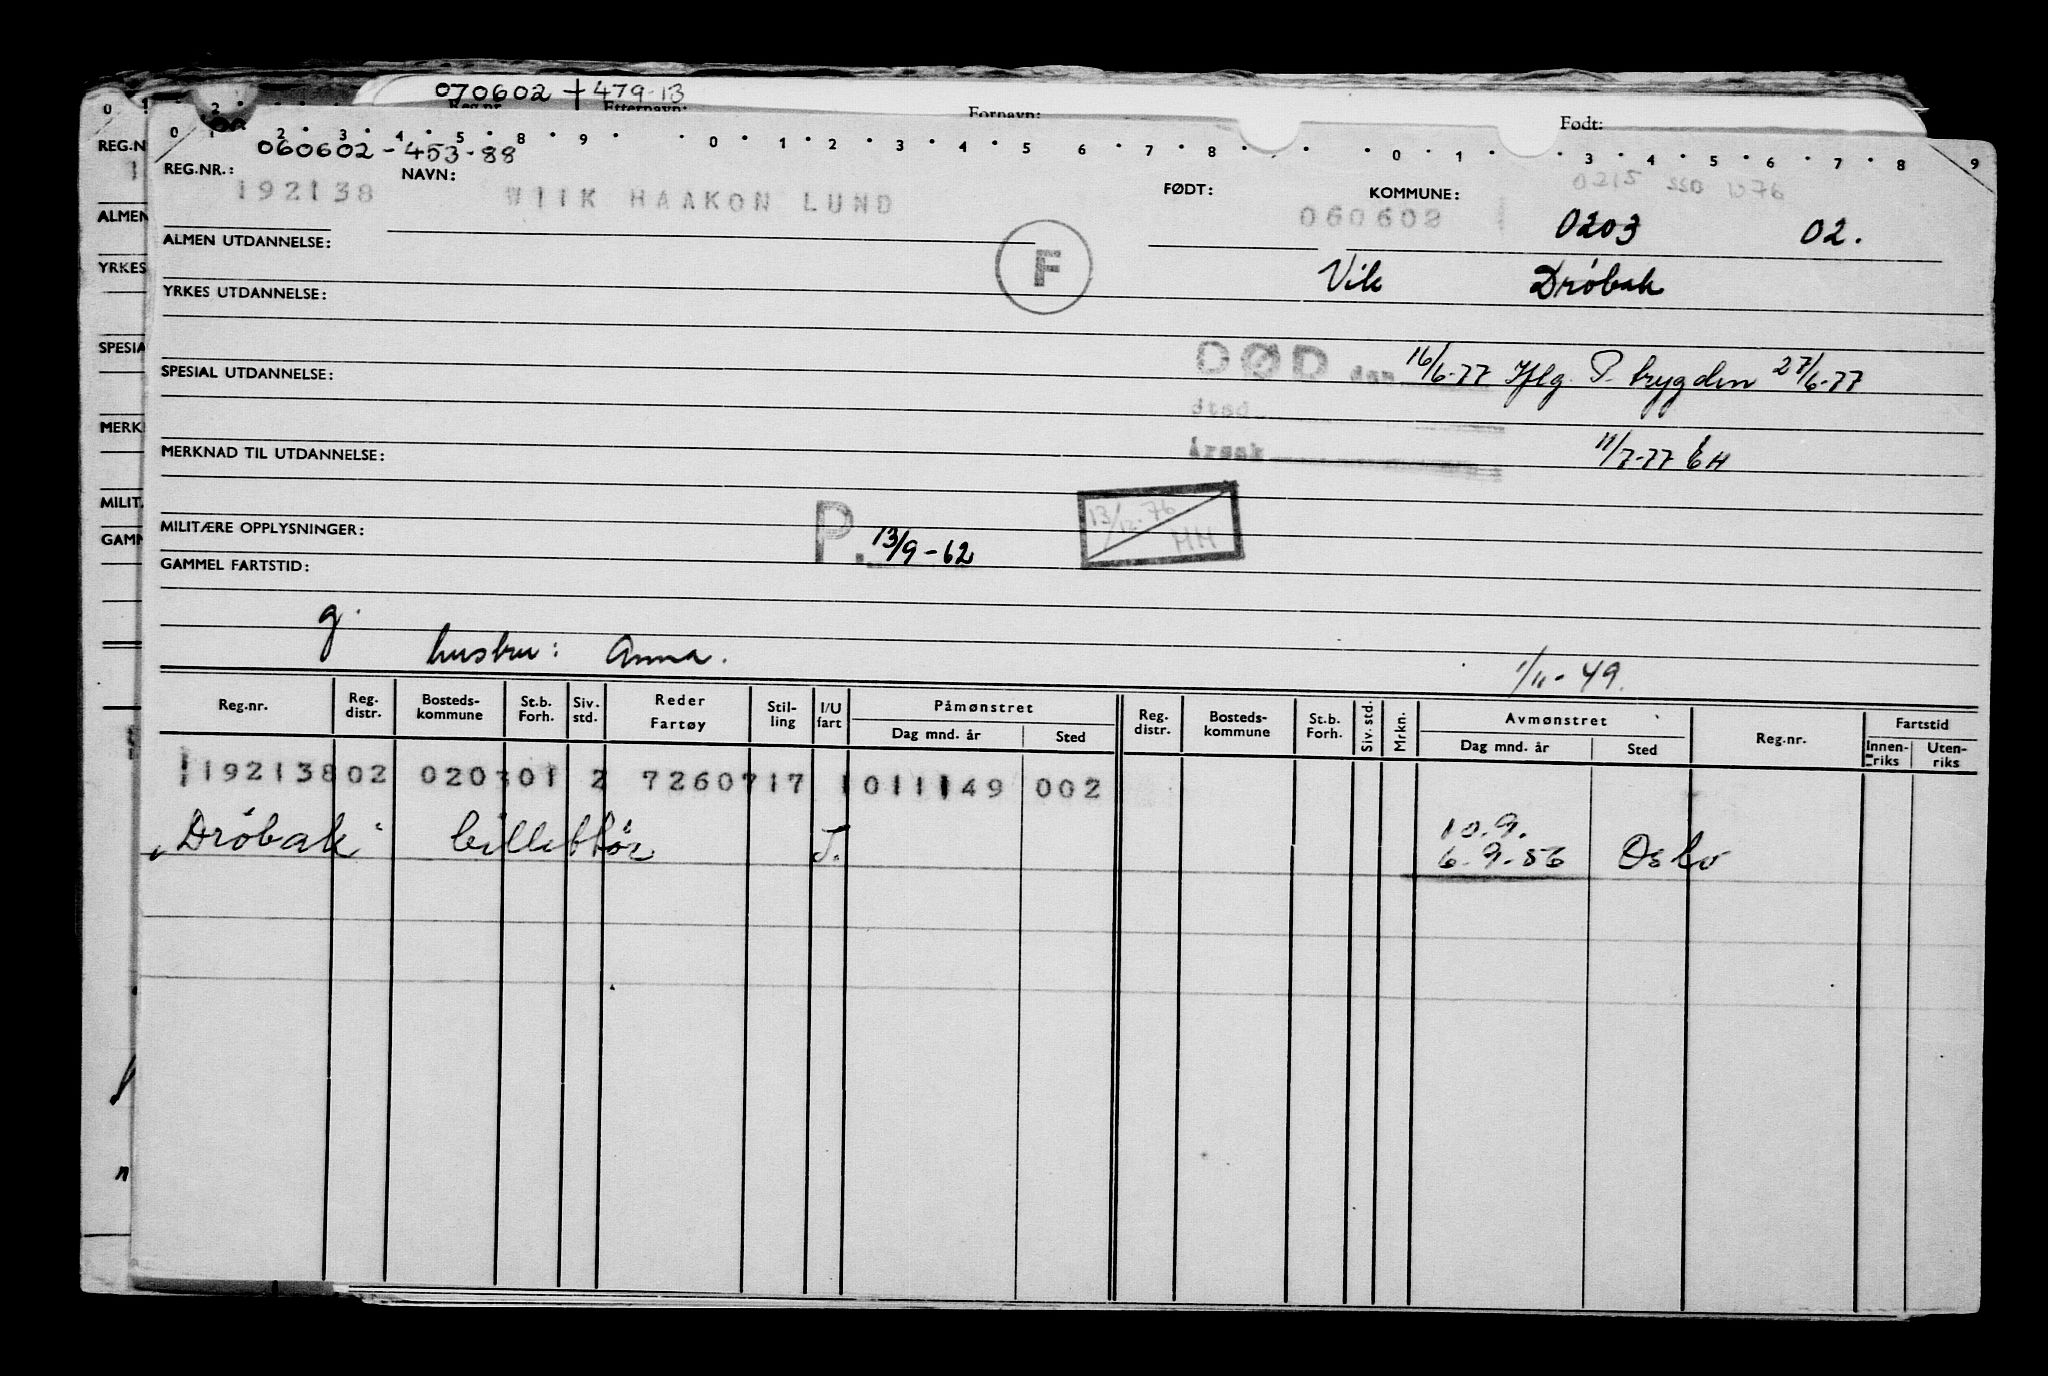 070602 + 479-13
Reg.nr. Etternavn: Fornavn: Født:
0 1 2 3 4 5 8 9 0 1 2 3 4 5 6 7 8 0 1 3 4 5 6 7 8 9
060602-453-88
REG.NR.: NAVN: FØDT: KOMMUNE: 0215 SSD 1276
192138 WIIK HAAKON LUND 060602 0203 02.
ALMEN UTDANNELSE: F Vik Drøbak
YRKES UTDANNELSE:
DØD den 16/6-77 Iflg. P-trygden 27/6-77
SPESIAL UTDANNELSE:
Sted
Årsak 11/7-77 EH
MERKNAD TIL UTDANNELSE:
13/12-76 HH
MILITÆRE OPPLYSNINGER: P. 13/9-62
GAMMEL FARTSTID:
g. hustru: Anna. 1/11-49.
Reg.nr. Reg. distr. Bosteds-kommune St.b. Forh. Siv. std. Reder Fartøy Stil-ling I/U fart Påmønstret Dag mnd. år Sted Reg. distr. Bosteds-kommune St.b. Forh. Siv. std. Mrkn. Avmønstret Dag mnd. år Sted Reg.nr. Fartstid Innen-riks Uten-riks
119213802 020301 2 7260717 1011149 002
"Drøbak" billettør J. 10.9.
6-9-56 Oslo
REG.N
ALMEN
YRKES
SPESIA
MERK
MILIT.
GAMM